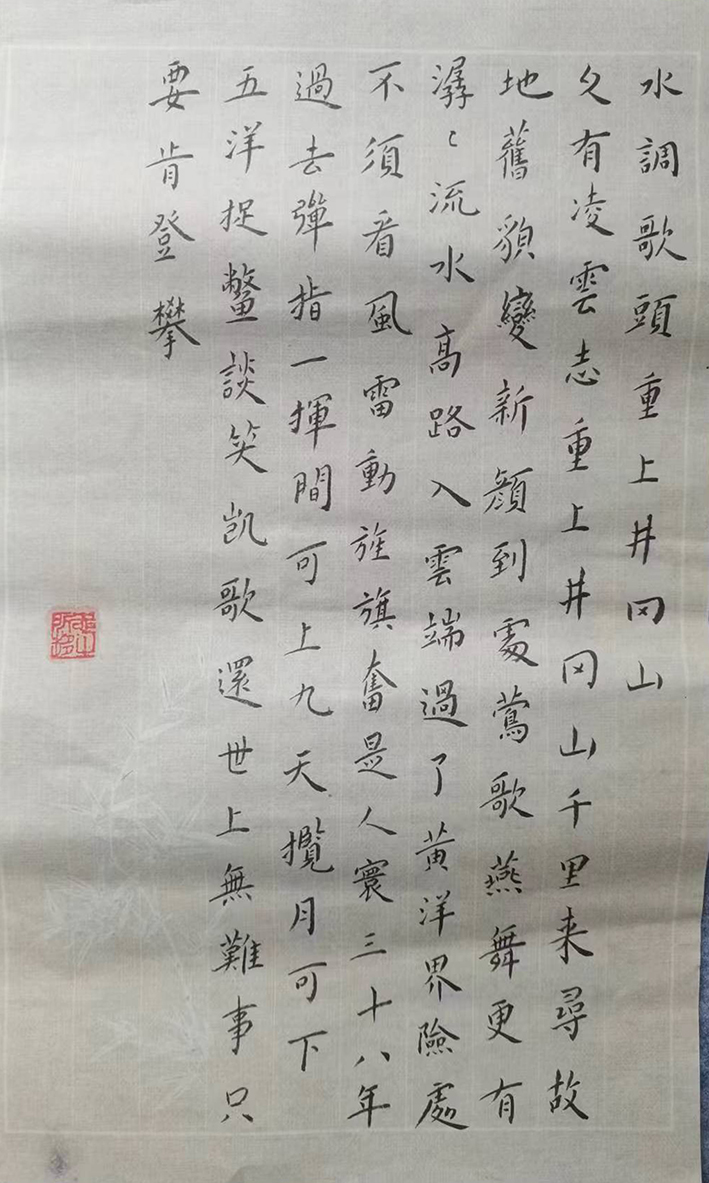 水調歌頭重上井冈山
久有凌雲志重上井冈山千里来尋故
地舊貌變新顔到處莺歌燕舞更有
潺〻流水高路入雲端過了黄洋界險處
不須看風雷動旌旗奮是人寰三十八年
過去彈指一揮間可上九天攬月可下
五洋捉鳖談笑凯歌還世上無難事只
要肯登攀